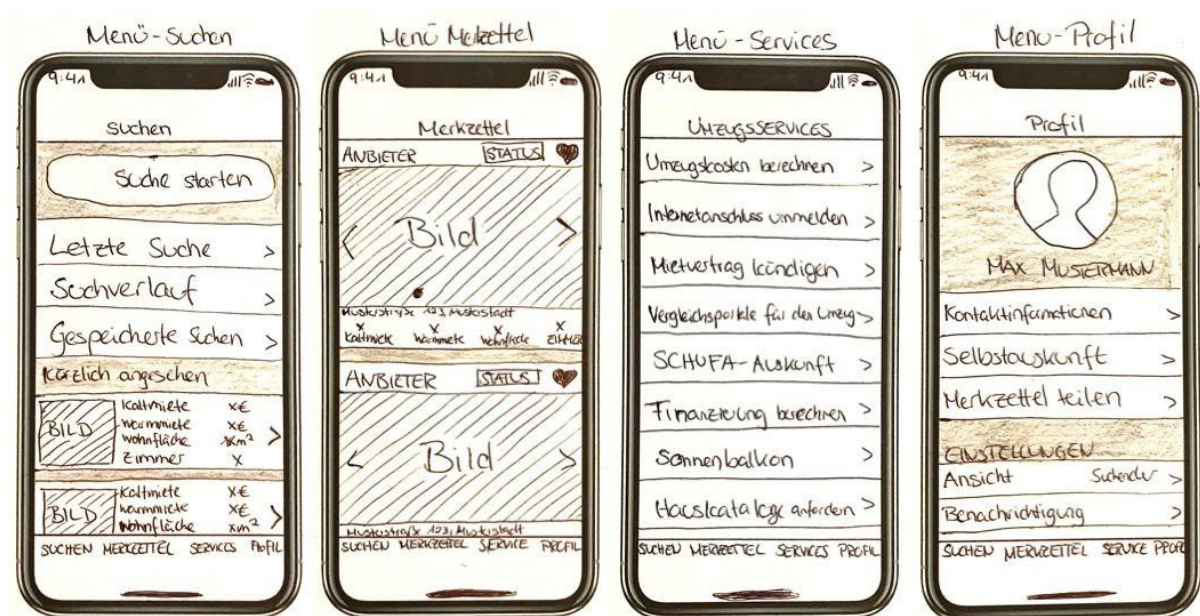 Menü-Suchen
9:41
Suchen
Suche starten
Letzte Suche >
Suchverlauf >
Gespeicherte Suchen >
Kürzlich angesehen
BILD
Kaltmiete x€
Warmmiete x€
Wohnfläche xxm²
Zimmer x
>
BILD
Kaltmiete x€
Warmmiete x€
Wohnfläche xm²
>
SUCHEN MERKZETTEL SERVICES PROFIL
Menü Merkzettel
9:41
Merkzettel
ANBIETER STATUS
< Bild >
Musterstraße 123, Musterstadt
x x x x
Kaltmiete Warmmiete Wohnfläche ZIMMER
ANBIETER STATUS
< Bild >
Musterstraße 123, Musterstadt
SUCHEN MERKZETTEL SERVICE PROFIL
Menü-Services
9:41
UMZUGSSERVICES
Umzugskosten berechnen >
Internetanschluss ummelden >
Mietvertrag kündigen >
Vergleichsportale für den Umzug >
SCHUFA-Auskunft >
Finanzierung berechnen >
Sonnenbalkon >
Hauskataloge anfordern >
SUCHEN MERKZETTEL SERVICES PROFIL
Menü-Profil
9:41
Profil
MAX MUSTERMANN
Kontaktinformationen >
Selbstauskunft >
Merkzettel teilen >
EINSTELLUNGEN
Ansicht Suchender >
Benachrichtigung >
SUCHEN MERKZETTEL SERVICE PROFIL